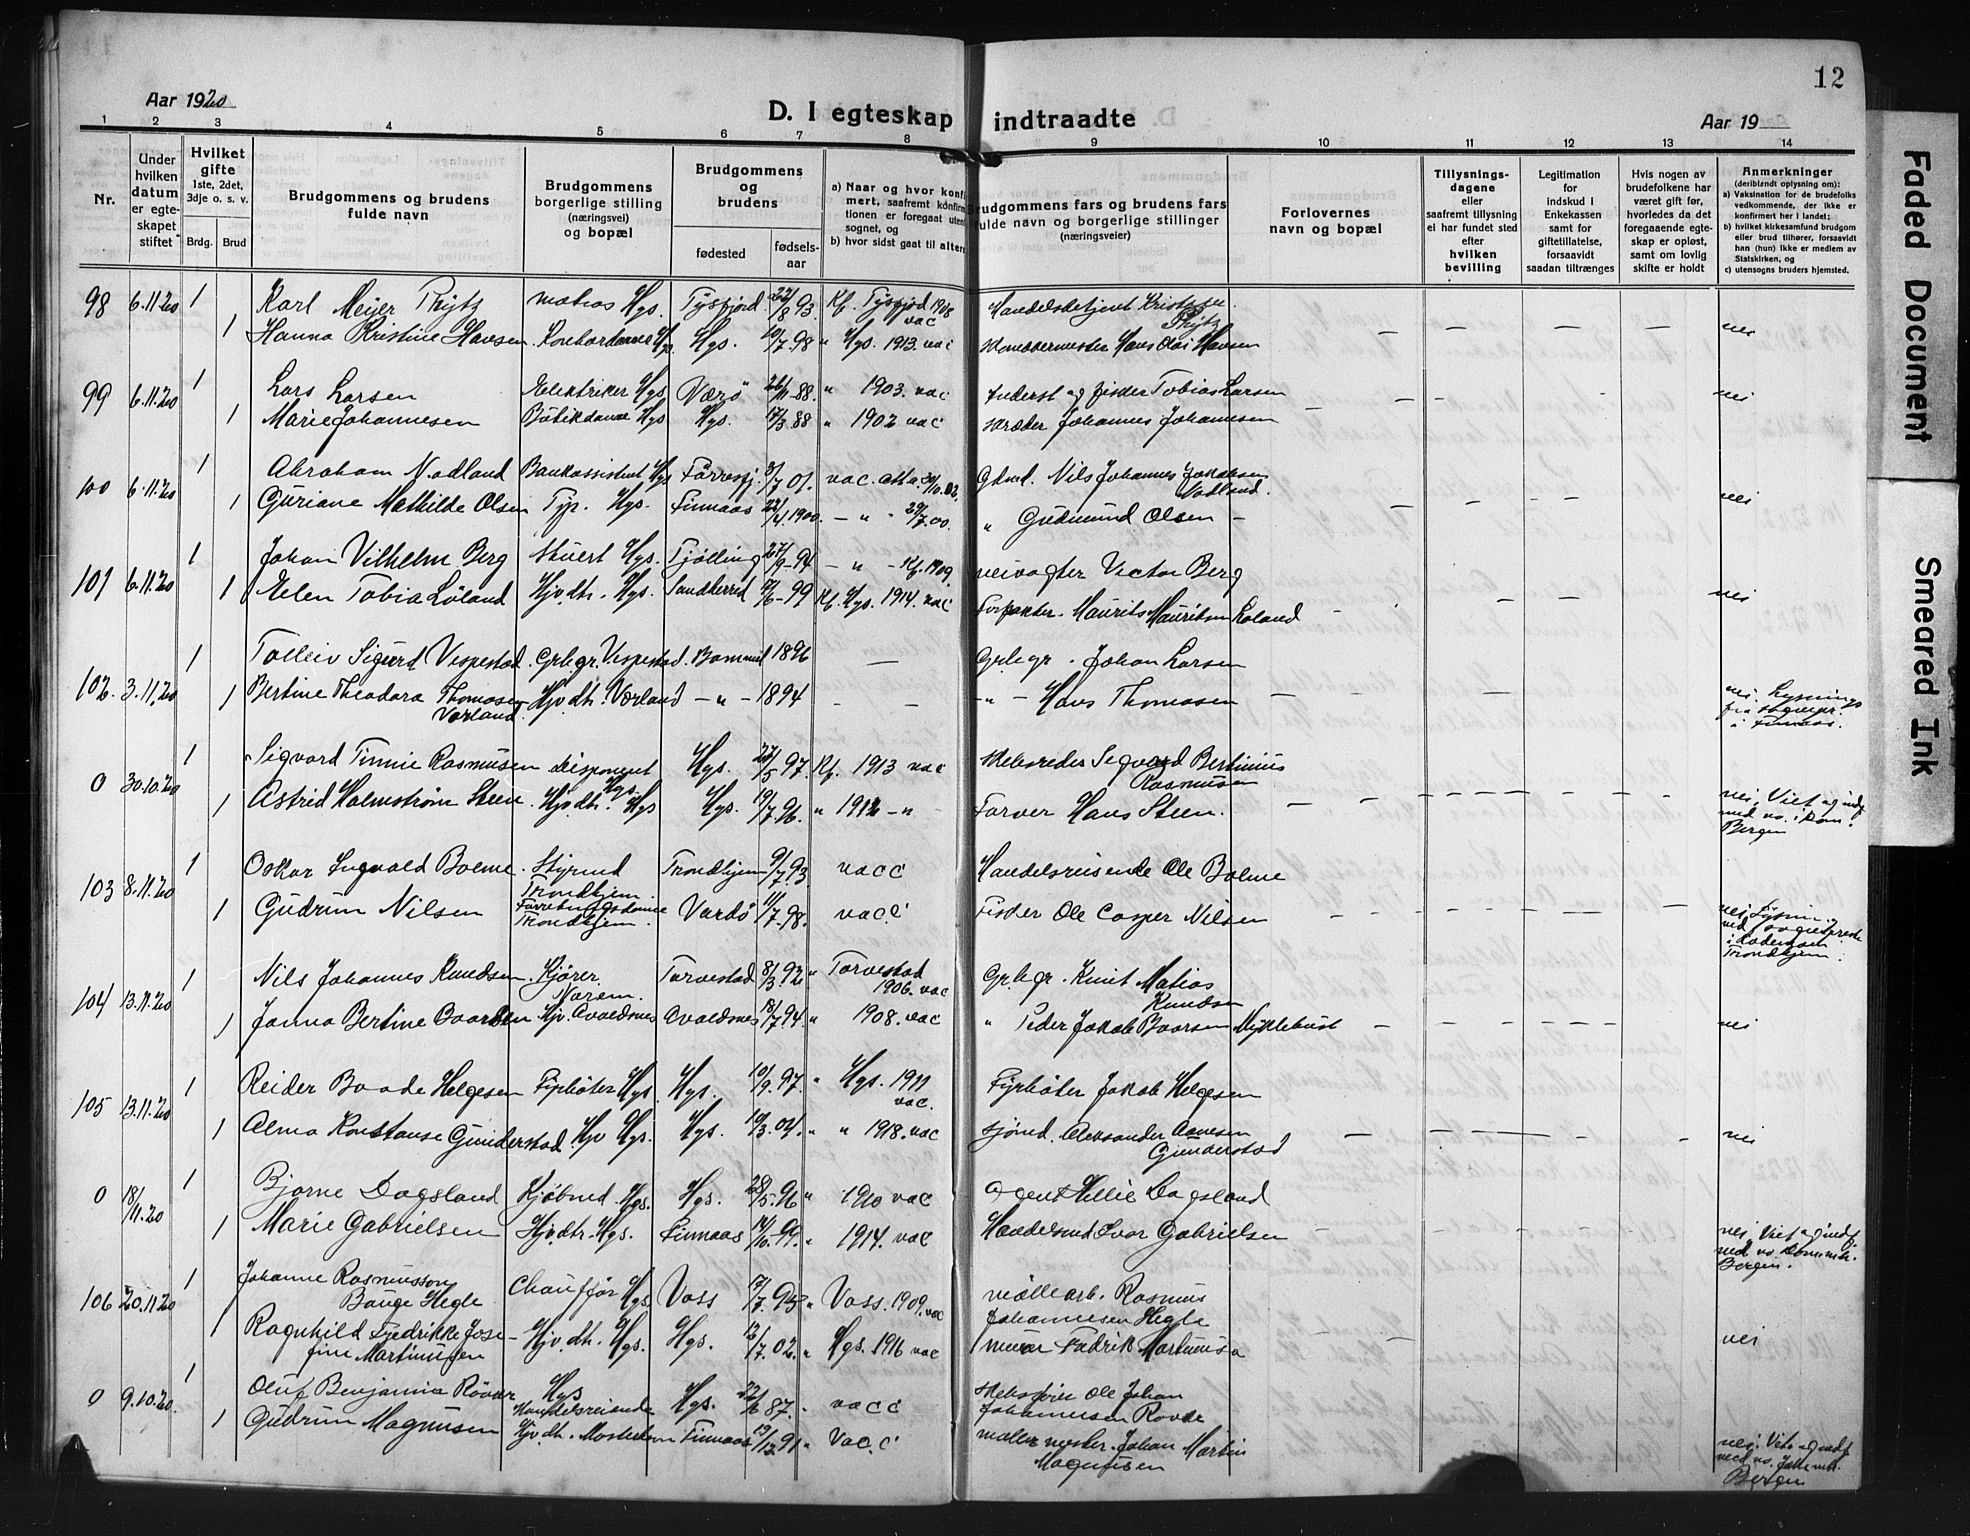 12
Aar 1920
D. I egteskap indtraadte
Aar 19
1 2 3 4 5 6 7 8 9 10 11 12 13 14
Nr.
Under hvilken datum er egte-skapet stiftet
Hvilket gifte 1ste, 2det, 3dje o. s. v.
Brdg. Brud
Brudgommens og brudens fulde navn
Brudgommens borgerlige stilling (næringsvei) og bopæl
Brudgommens og brudens
fødested
fødsels-aar
a) Naar og hvor konfi
mert, saafremt konfirm
tionen er foregaat uten
sognet, og
b) hvor sidst gaat til alters
Brudgommens fars og brudens fars
fulde navn og borgerlige stillinger
(næringsveier)
Forlovernes navn og bopæl
Tillysnings-dagene eller saafremt tillysning ei har fundet sted efter hvilken bevilling
Legitimation for indskud i Enkekassen samt for giftetillatelse, forsaavidt saadan tiltrænges
Hvis nogen av brudefolkene har været gift før, hvorledes da det foregaaende egte-skap er opløst, samt om lovlig skifte er holdt
Anmerkninger
(deriblandt oplysning om):
a) Vaksination for de brudefolks vedkommende, der ikke er konfirmert her i landet;
b) hvilket kirkesamfund brudgom eller brud tilhører, forsaavidt han (hun) ikke er medlem av Statskirken, og
c) utensogns bruders hjemsted.
98 6.11.20 1 Karl Meijer Thijtz matros Hgs. Tysfjord 22/8 93 Kf. Tysfjod 1908 vac Handelsbetjent Kristofer Thijtz
1 Hanna Kristine Hansen Hgs. 10/7 98 " Hgs. 1913. vac Hans Olai Hansen nei
99 6.11.20 1 Lars Larsen Elektriker Hgs Værø 26/11-88. " 1903. vac Inderst og fisker Tobias Larsen nei
1 Marie Johannesen Butikdame Hgs Hgs. 17/3 88 " 1902 vac skræder Johannes Johannesen
100 6.11.20 1 Abraham Nodland Bankassistent Hgs Førresfj. 3/7 01. vac. Gdmd. Nils Johannes Jakobsen Nodland.
1 Guriane Mathilde Olsen Typ. Hgs. Finnaas 22/4 1900. - " - 29/7.00. " Gudmund Olsen - nei
101 6.11.20 1 Johan Vilhelm Berg Stuert Hgs. Tjølling 27/9-94 - " - Kf. 1909. veivogter Victor Berg
1 Elen Tobia Løland Hjv.dtr. Hgs. Sandherred 9/6-99 Kf. Hgs. 1914. vac Maurits Mauritsen Løland nei
102. 3.11.20 1 Tolleiv Sigurd Vespestad. Grbgr. Vespestad. Bommel 1896 — Grbgr. Johan Larsen
1 Bertine Theodora Thomasen Vorland. Hjv.dtr. Vorland - " - 1894 - " - Hans Thomasen nei. Lysnings fra sognepr. i Finnaas.
0 30.10.20 1 Sigvard Timmie Rasmusen disponent Hgs. Hgs. 22/5 97. Kf. 1913 vac Skibsreder Sigvard Bertinius Rasmusen
1 Astrid Holmstrøm Steen. Hjv.dtr. Hgs Hgs. 19/7.96. " 1912 - " - Farver Hans Steen. nei. Viet og indf ved no. i kom. Bergen
103 8.11.20 1 Oskar Ingvald Bolme. Styrmd Trondhjem Trondhjem 9/7.93 vacc Handelsreisende Ole Bolme
1 Gudrun Nilsen Trondhjem. Vardø 11/7-98. vacc Fisker Ole Casper Nilsen nei. Trondhjem.
104 13.11.20 1 Nils Johannes Knudsen. Kjører. Norem. Torvestad 8/3.92 " Torvestad 1906. vac Grbgr. Knut Matias Knudsen
1 Janna Bertine Baardsen Hjv. Avaldsnes Avaldsnes 18/7 94. " 1908. vac " Peder Jakob Baarsen Myklebust nei
105 13.11.20 1 Reider Baade Helgesen Fyrbøter Hgs. Hgs. 10/9. 97. " Hgs. 1911 vac. Fyrbøter Jakob Helgesen
1 Alma Konstanse Gunderstad. Hjv Hgs. Hgs. 3.04. " " 1918. vac sjømd. Aleksander Aanesen Gunderstad nei
0 18/11.20 1 Bjarne Dagsland Kjøbmd. Hgs. Hgs. 28/5.96 " 1910 vac agent Dagsland
1 Marie Gabrielsen Hjv.dtr. Hgs. Finnaas 14/10-99. " 1914. vac Handelsmd Ivar Gabrielsen nei. Viet og indf. ved no. Bergen.
106 20.11.20 1 Johanne Rasmusson Bauge Hegle Chauffør Hgs. Voss 17/7. 95 " Voss. 1909. vac møllearb. Rasmus Johannesen Hegle
1 Ragnhild Fredrikke Jose-fine Martinussen Hjv.dtr. Hgs. Hgs. 12/7.02. " Hgs. 1916 vac murer Fredrik nei
0 9.10.20. 1 Oluf Benjamin Hgs Handelsreisende Hgs. 22/6 87. vacc Ole Johan Johannesen Rovde
1 Gudrun Magnusen Hjv.dtr. Finnaas 13/12 91 " Vac.c malermester Johan Martin Magnusen nei. Viet og indf ved no. Bergen
Faded Document
Smeared Ink